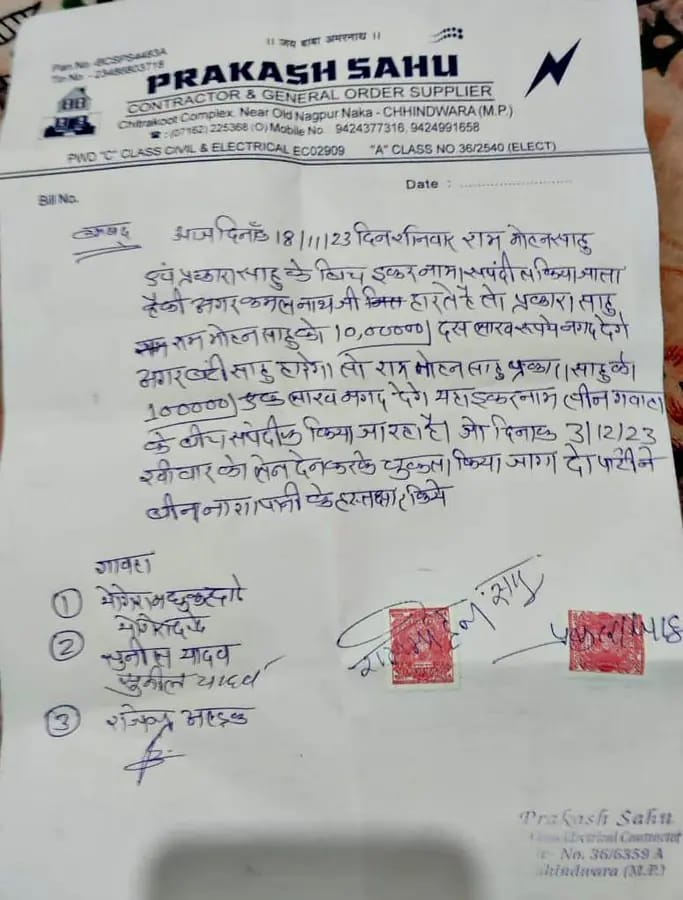 ।। जय बाबा अमरनाथ ।।
Pan.No -BCSPS4483A
Tin No - 23486803718
PRAKASH SAHU
CONTRACTOR & GENERAL ORDER SUPPLIER
Chitrakoot Complex, Near Old Nagpur Naka - CHHINDWARA (M.P.)
☎ : (07162) 225368 (O) Mobile No. 9424377316, 9424991658
PWD "C" CLASS CIVIL & ELECTRICAL EC02909 "A" CLASS NO 36/2540 (ELECT)
Bill No.
Date : ..........................
आज दिनाँक 18/11/23 दिन शनिवार राम मोहन साहु
एवं प्रकाश साहु के बिच इकरनामा संपंदीत किया जाता
हैकी अगर कमल नाथ जी हारते है तो प्रकाश साहु
राम मोहन साहु को 10,00000/ दस लाख रूपये नगद देगे
अगर बंटी साहु हारेगा तो राम मोहन साहु प्रकाश साहु को
100000/ एक लाख नगद देगे यहा इकरनाम तीन गवाहा
के बीच संपदीत किया जा रहा है। जो दिनाक 3/12/23
रवीवार को लेन देन करके चुकता किया जागा दो पार्टी ने
बीन नाशा पानी के हस्तक्षार किये
गावहा
①
② सुनील यादव
सुनील यादव
③
राम मोहन साहु
प्रकाश साहु
Prakash Sahu
Electrical Contractor
No. 36/6359 A
hhindwara (M.P.)